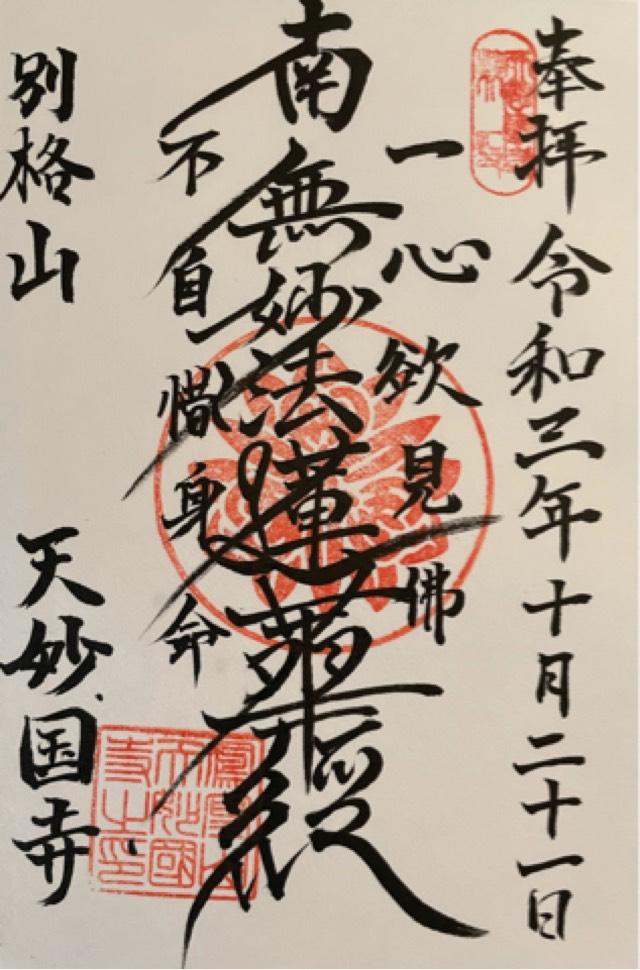 奉拝 令和三年十月二十一日
一心欲見佛
南無妙法蓮華經
不自惜身命
別格山 天妙国寺
鳳凰山天妙國寺之印